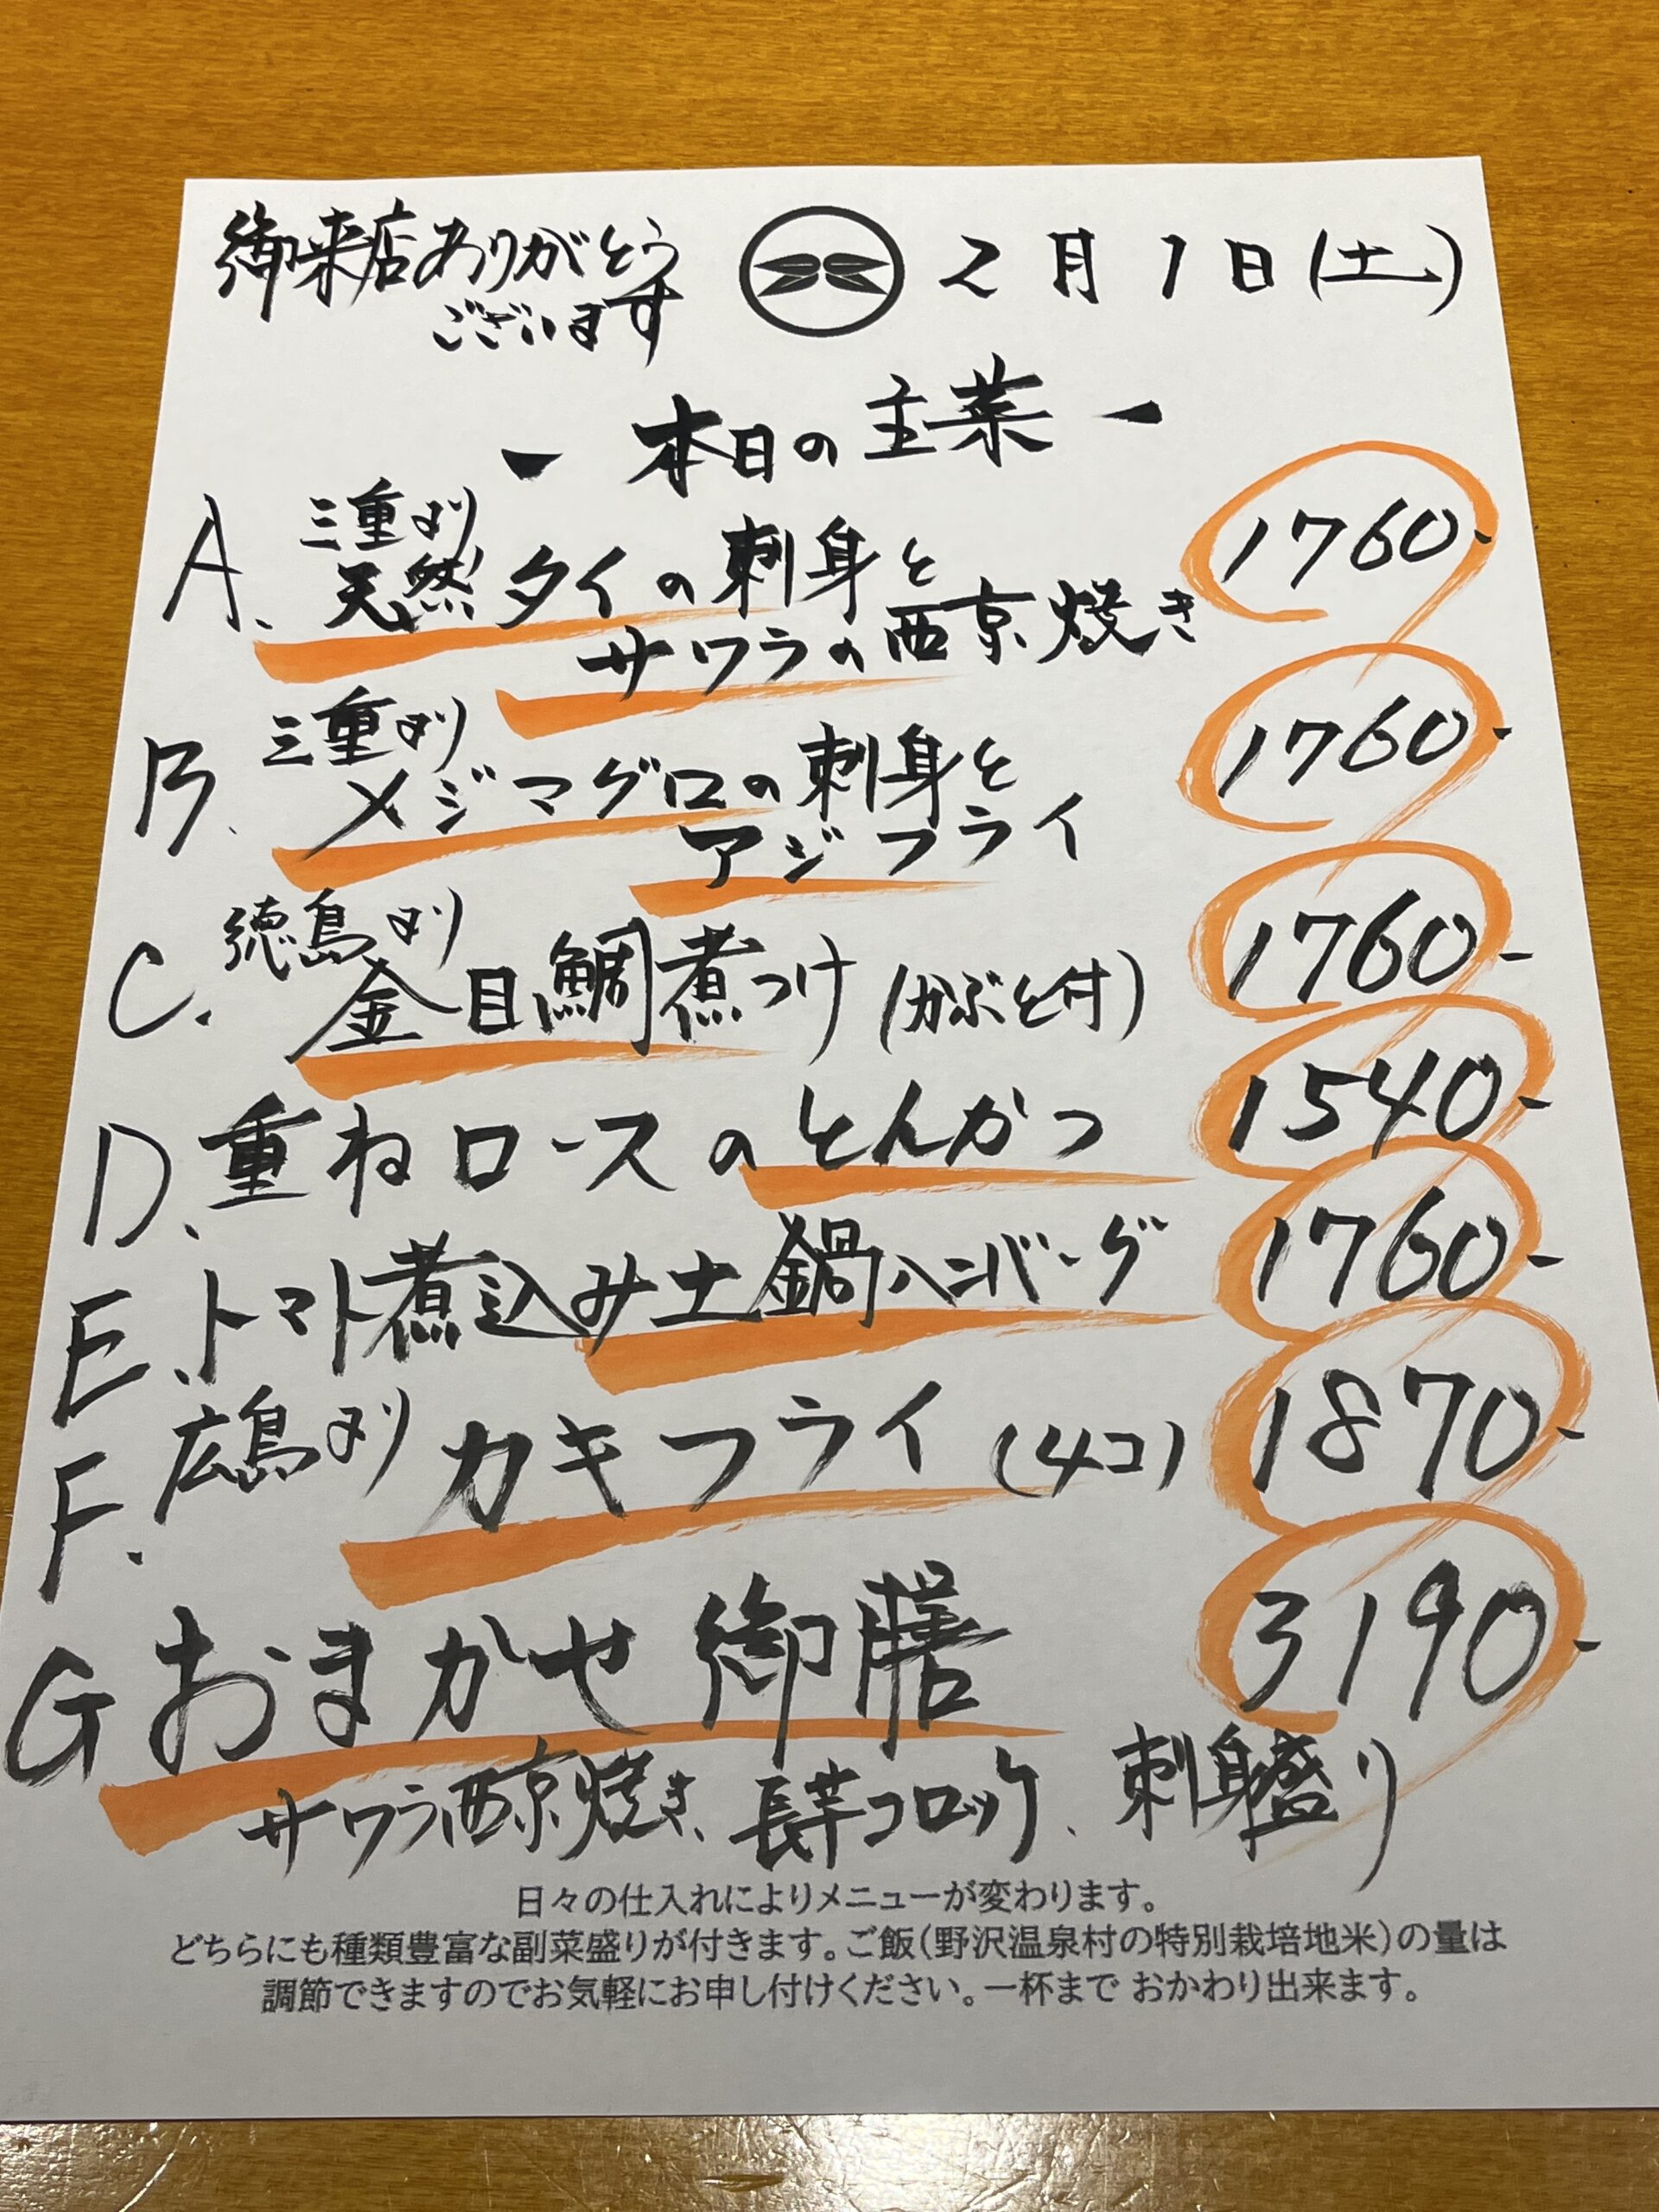 御来店ありがとう
ございます
2月1日(土)
- 本日の主菜 -
A. 三重より
天然タイの刺身と
サワラの西京焼き
1760-
B. 三重より
メジマグロの刺身と
アジフライ
1760-
C. 徳島より
金目鯛煮つけ(かぶと付)
1760-
D. 重ねロースのとんかつ
1540-
E. トマト煮込み土鍋ハンバーグ
1760-
F. 広島より
カキフライ(4コ)
1870-
G おまかせ御膳
3190-
サワラ西京焼き、長芋コロッケ、刺身盛り
日々の仕入れによりメニューが変わります。
どちらにも種類豊富な副菜盛りが付きます。ご飯(野沢温泉村の特別栽培地米)の量は
調節できますのでお気軽にお申し付けください。一杯まで おかわり出来ます。